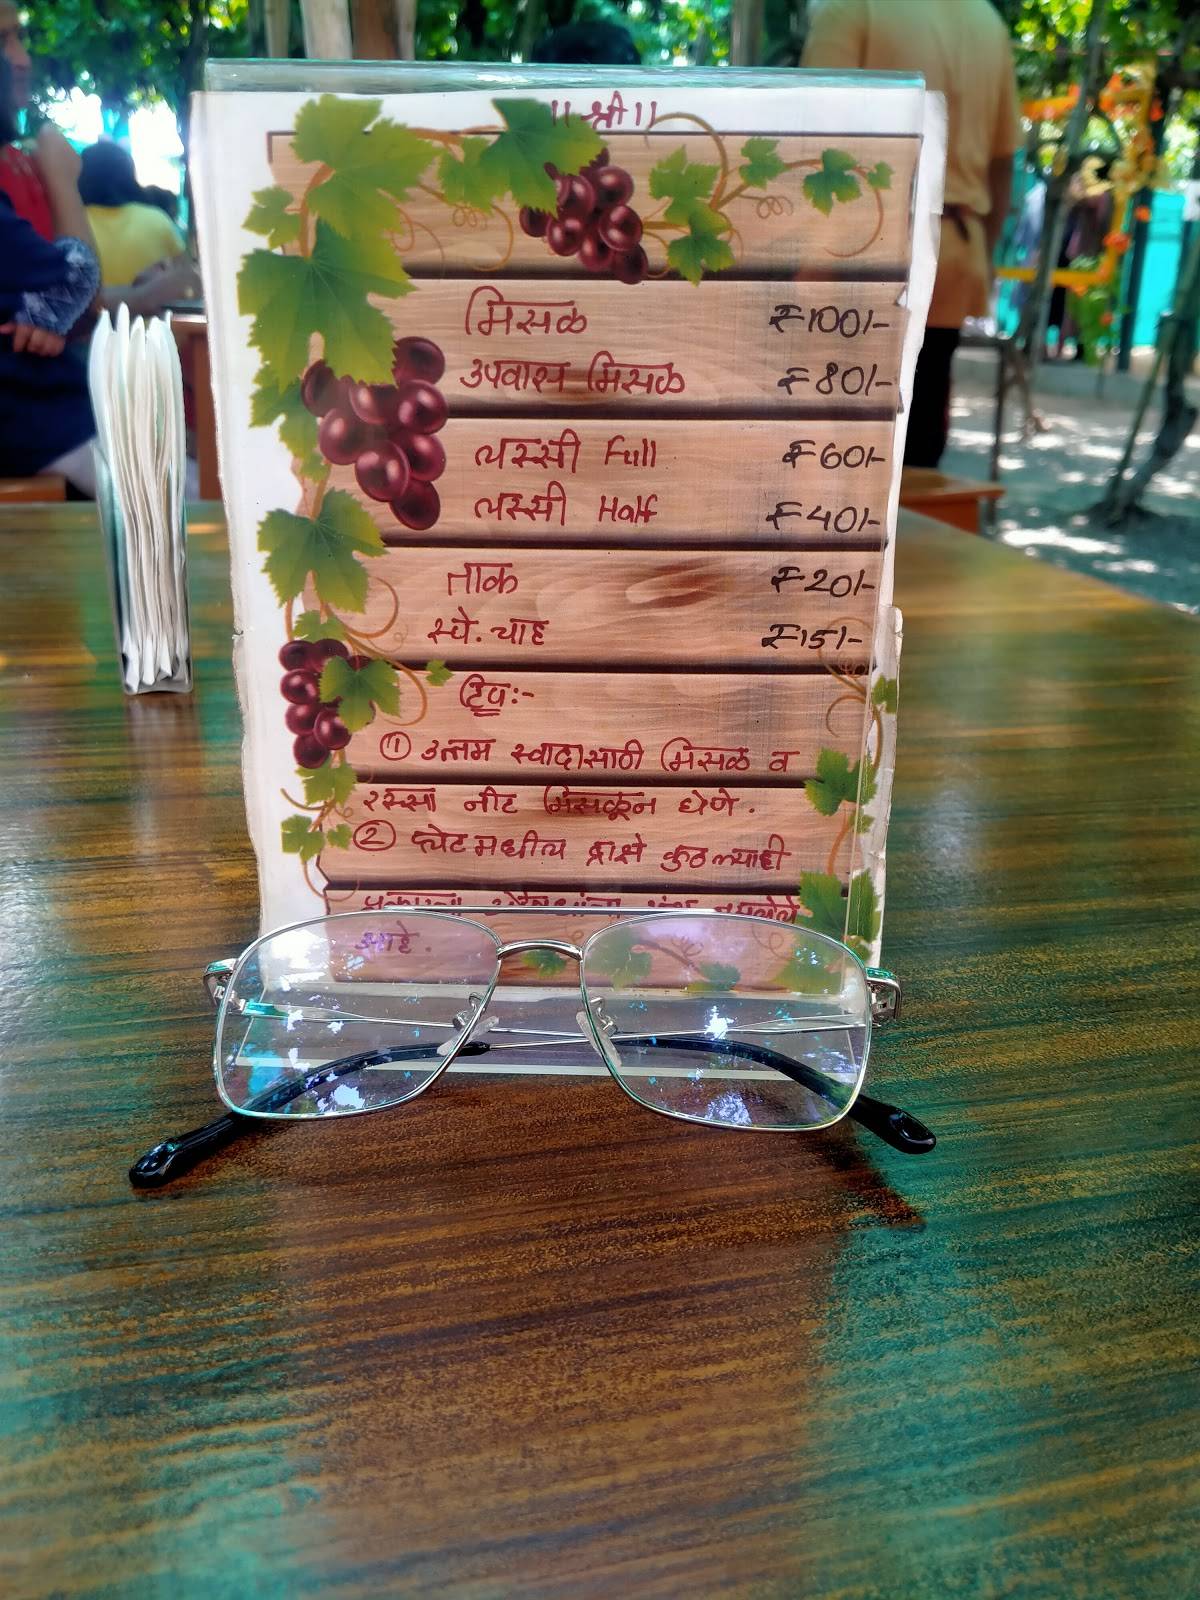 ॥ श्री ॥
मिसळ ₹100/-
उपवास मिसळ ₹80/-
लस्सी Full ₹60/-
लस्सी Half ₹40/-
ताक ₹20/-
स्पे. चाह ₹15/-
टिप:-
① उत्तम स्वादासाठी मिसळ व
रस्सा नीट मिसळून घेणे.
② प्लेटमधील द्राक्षे कुठल्याही
आहे.